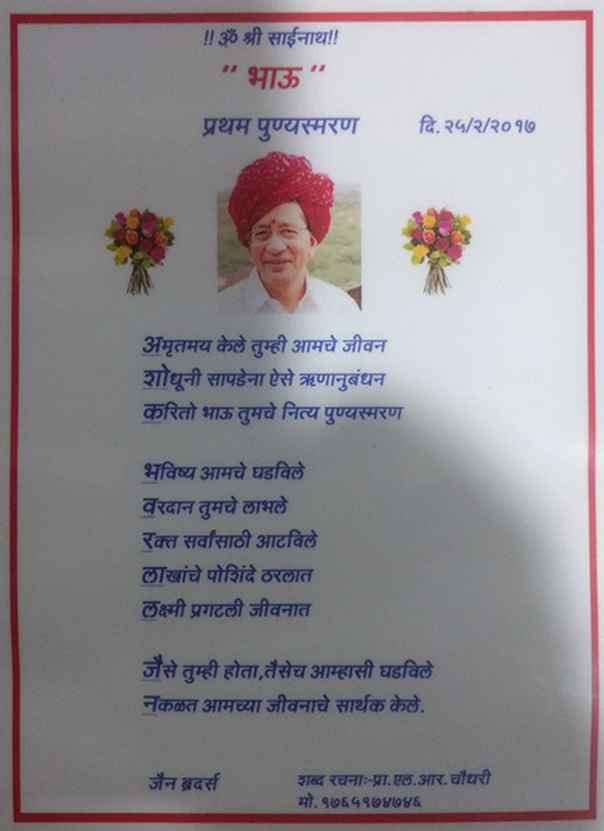 !! ॐ श्री साईनाथ!!
“ भाऊ “
प्रथम पुण्यस्मरण दि.२५/२/२०१७
अमृतमय केले तुम्ही आमचे जीवन
शोधूनी सापडेना ऐसे ऋणानुबंधन
करितो भाऊ तुमचे नित्य पुण्यस्मरण
भविष्य आमचे घडविले
वरदान तुमचे लाभले
रक्त सर्वांसाठी आटविले
लाखांचे पोशिंदे ठरलात
लक्ष्मी प्रगटली जीवनात
जैसे तुम्ही होता,तैसेच आम्हासी घडविले
नकळत आमच्या जीवनाचे सार्थक केले.
जैन ब्रदर्स शब्द रचनाः-प्रा.एल.आर.चौधरी
मो.९७६५९७४७४६